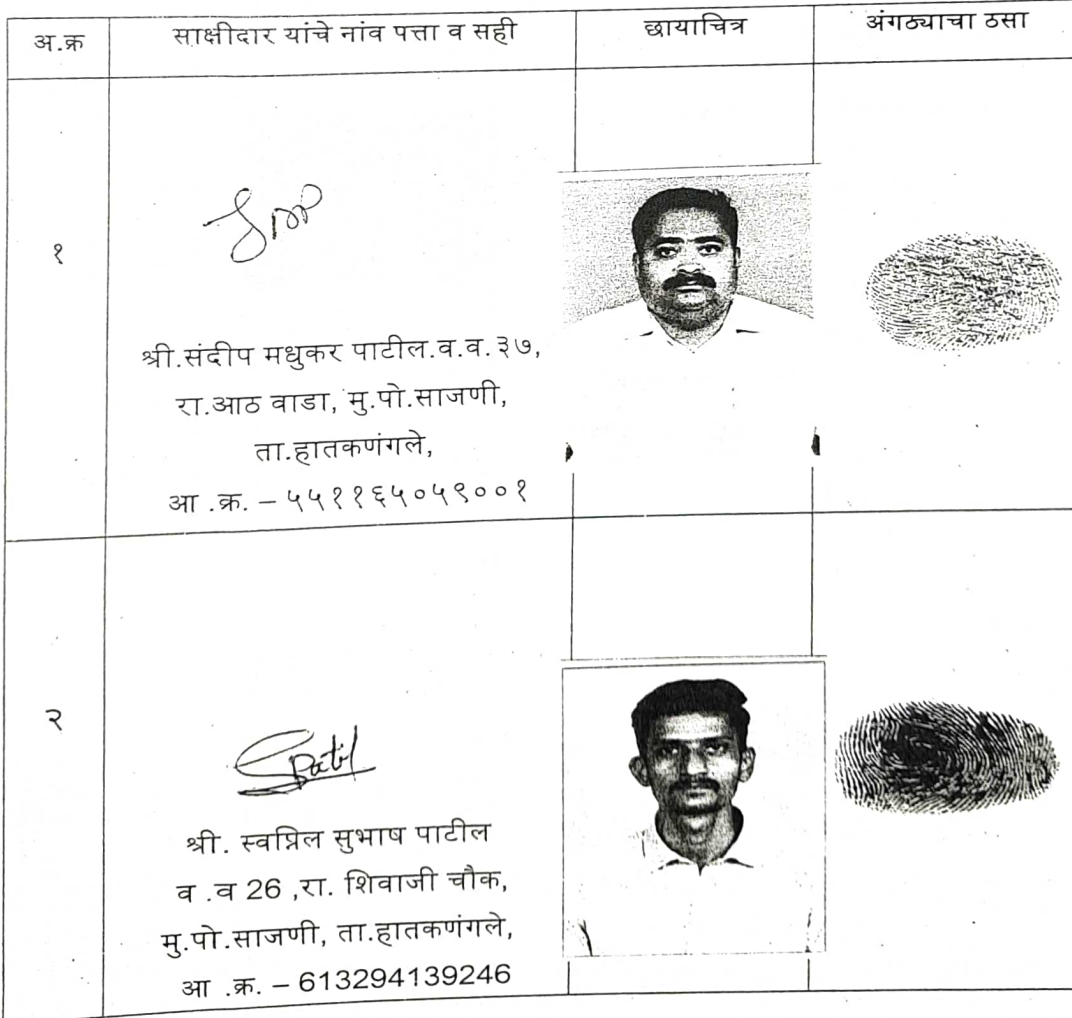 अ.क्र साक्षीदार यांचे नांव पत्ता व सही छायाचित्र अंगठ्याचा ठसा
१
श्री.संदीप मधुकर पाटील.व.व.३७,
रा.आठ वाडा, मु.पो.साजणी,
ता.हातकणंगले,
आ .क्र. – ५५११६५०५९००१
२
SPatil
श्री. स्वप्निल सुभाष पाटील
व .व 26 ,रा. शिवाजी चौक,
मु.पो.साजणी, ता.हातकणंगले,
आ .क्र. – 613294139246